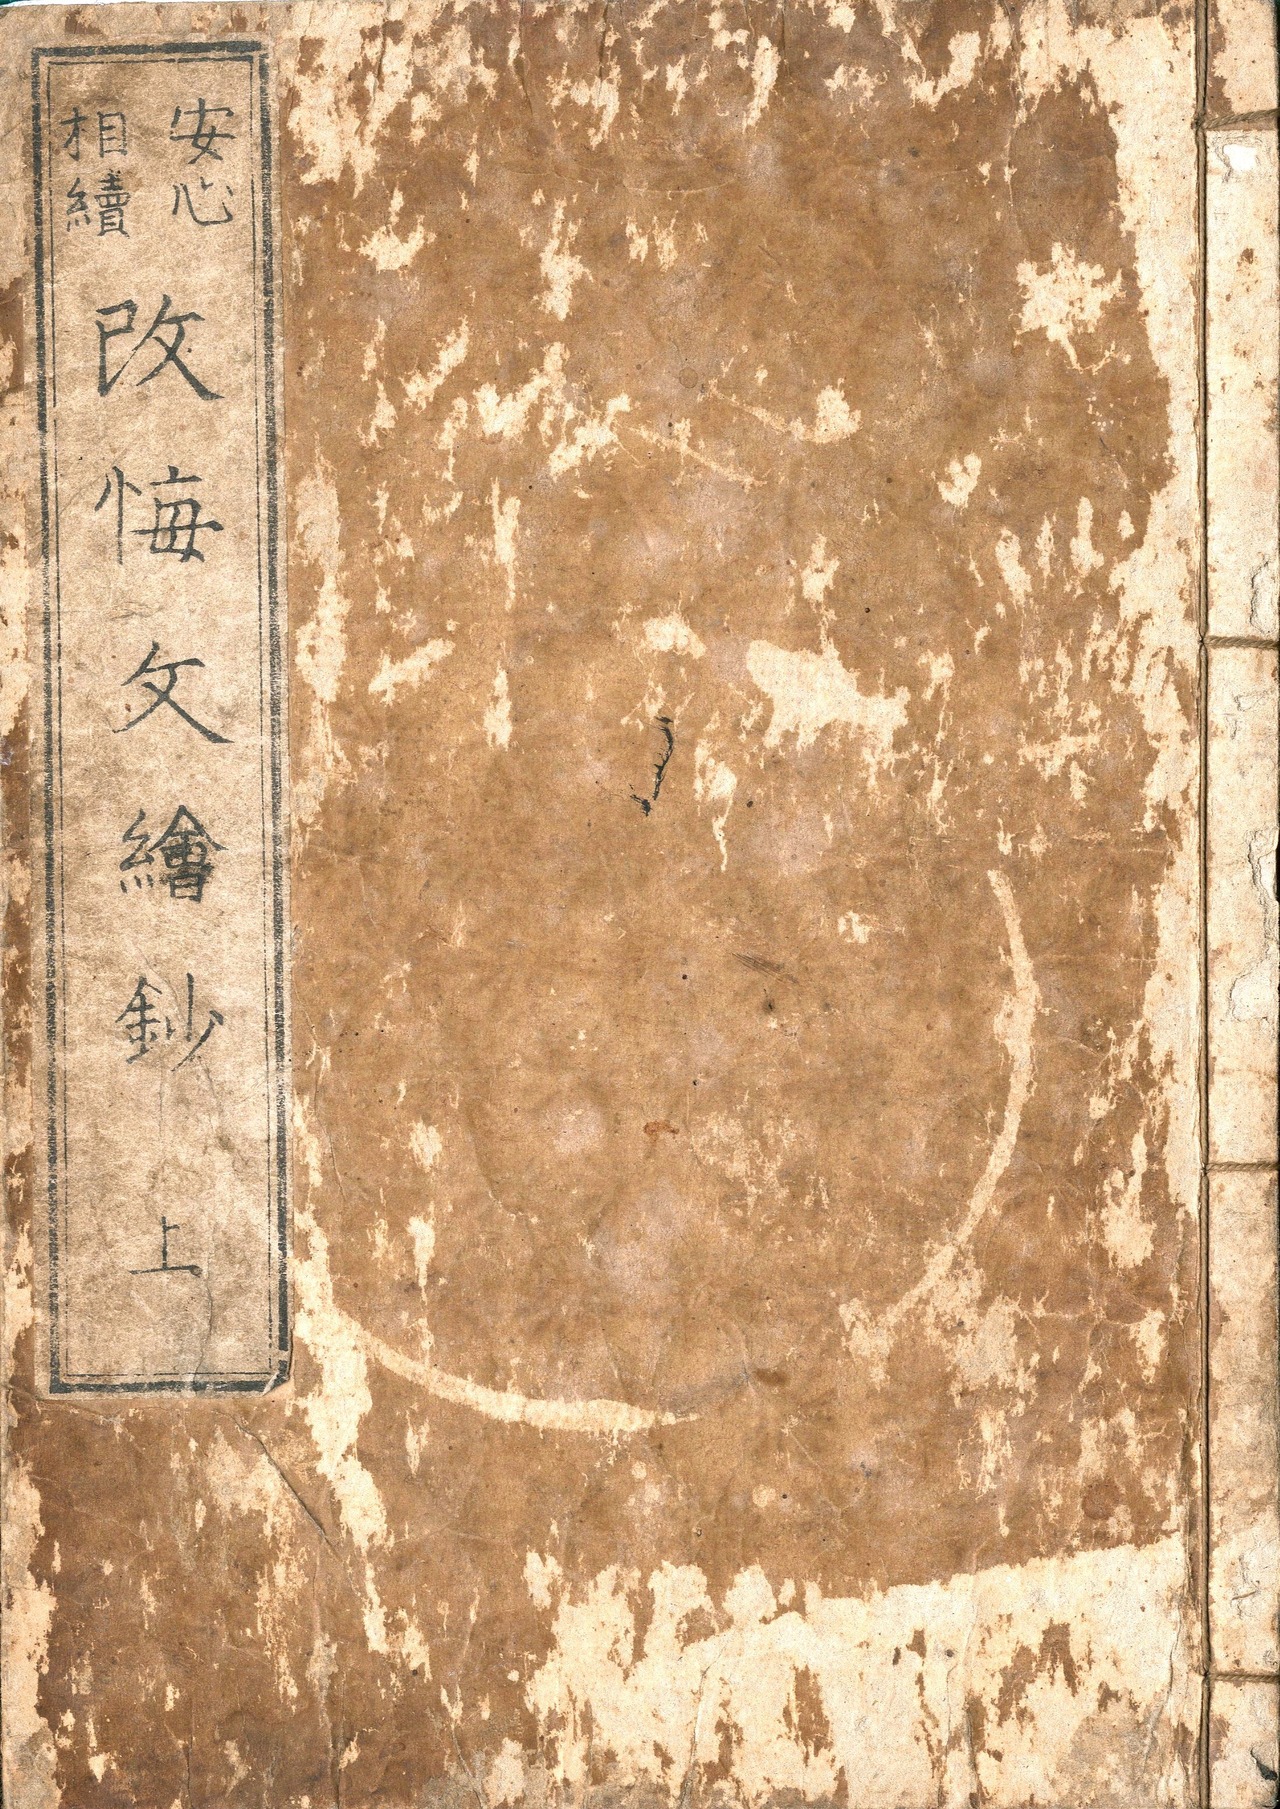 安心
相續
改悔文繪鈔 上